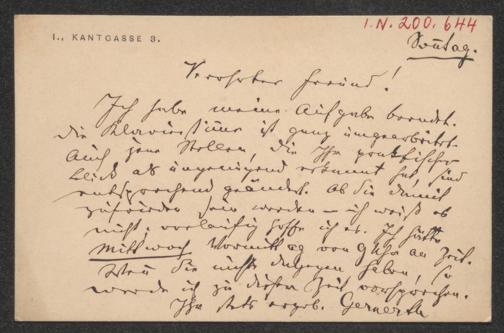 I.N. 200.644
I., KANTGASSE 3.
Sonntag.
Verehrter Freund!
Ich habe meine Aufgabe beendet.
Die Klavierstimme ist ganz umgearbeitet.
Auch jene Stellen, die Ihr praktischer
Blick als ungenügend erkannt hat, sind
entsprechend geändert. Ob Sie damit
zufrieden sein werden – ich weiß es
nicht, vorläufig hoffe ich es. Ich hätte
Mittwoch Vormittag von 9 Uhr an Zeit.
Wenn Sie nichts dagegen haben, so
werde ich zu dieser Zeit vorsprechen.
Ihr stets ergeb. Gernerth